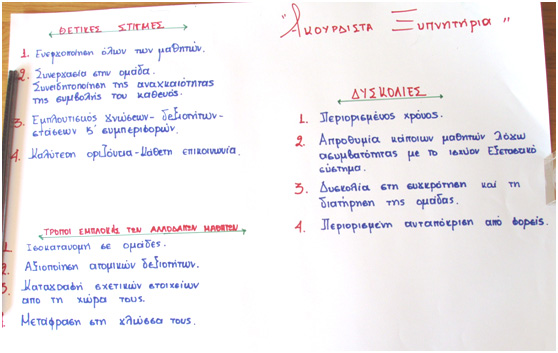 ΘΕΤΙΚΕΣ ΣΤΙΓΜΕΣ
1. Ενεργοποίηση όλων των μαθητών.
2. Συνεργασία στην ομάδα.
Συνειδητοποίηση της αναγκαιότητας
της συμβολής του καθενός.
3. Εμπλουτισμός γνώσεων - δεξιοτήτων -
στάσεων κ' συμπεριφορών.
4. Καλύτερη οριζόντια - κάθετη επικοινωνία.
ΤΡΟΠΟΙ ΕΜΠΛΟΚΗΣ ΤΩΝ ΑΛΛΟΔΑΠΩΝ ΜΑΘΗΤΩΝ
1. Ισοκατανομή σε ομάδες.
2. Αξιοποίηση ατομικών δεξιοτήτων.
3. Καταγραφή σχετικών στοιχείων
από τη χώρα τους.
. Μετάφραση στη γλώσσα τους.
"Ακούρδιστα Ξυπνητήρια"
ΔΥΣΚΟΛΙΕΣ
1. Περιορισμένος χρόνος.
2. Απροθυμία κάποιων μαθητών λόγω
ασυμβατότητας με το ισχύον Εξεταστικό
σύστημα.
3. Δυσκολία στη συγκρότηση και τη
διατήρηση της ομάδας.
4. Περιορισμένη ανταπόκριση από φορείς.